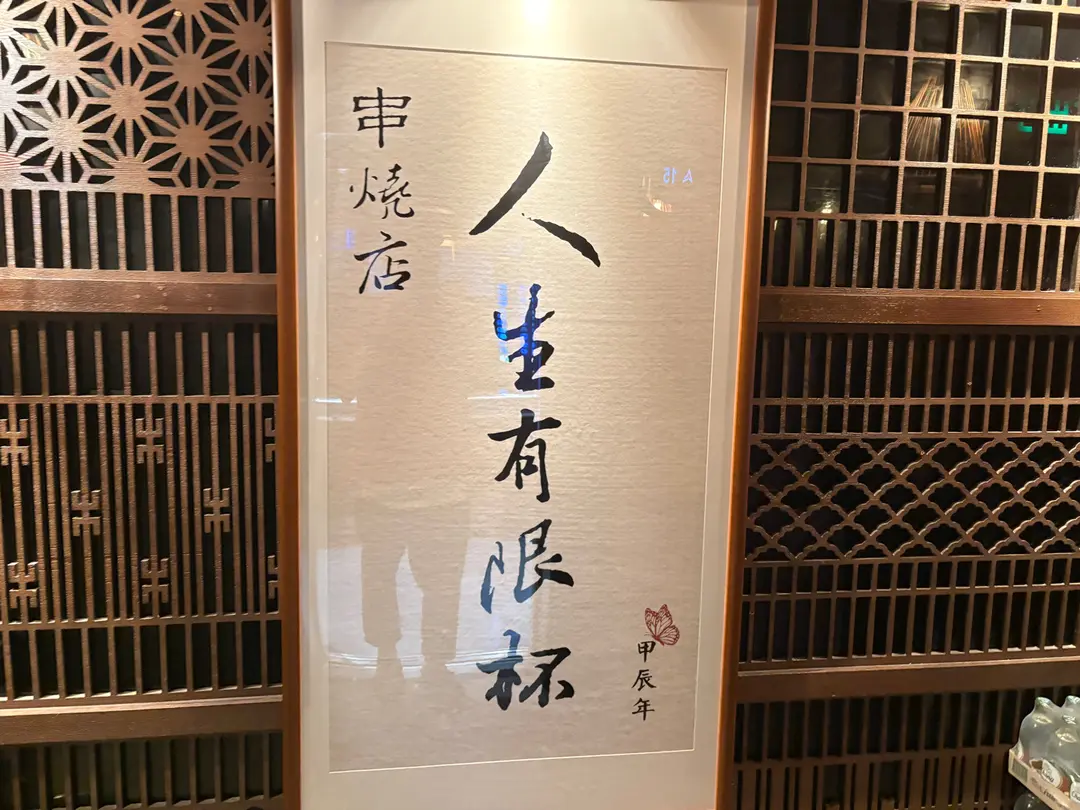 串燒店
人生有限杯
甲辰年
A 15